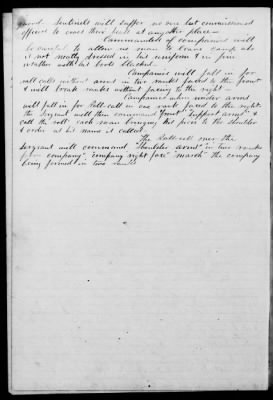 guard. Sentinels will suffer no one but commissioned
officers to cross their beats at any other place—
Commanders of companies will
be careful to allow no man to leave camp who
is not neatly dressed in his uniform & in fair
weather with his boots blacked.
Companies will fall in for
roll calls without arms in two ranks faced to the front
& will break ranks without facing to the right—
Companies when under arms
will fall in for Roll-call in one rank faced to the right
the Sergeant will then command "front" "support arms" &
call the roll each man bringing his piece to the shoulder
& order as his name is called.
The Roll-call over the
Sergeant will command "Shoulder arms" in two ranks
form company", "company right face" "march" the company
being formed in two ranks